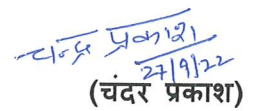 चन्द्र प्रकाश
27/9/22
(चंदर प्रकाश)